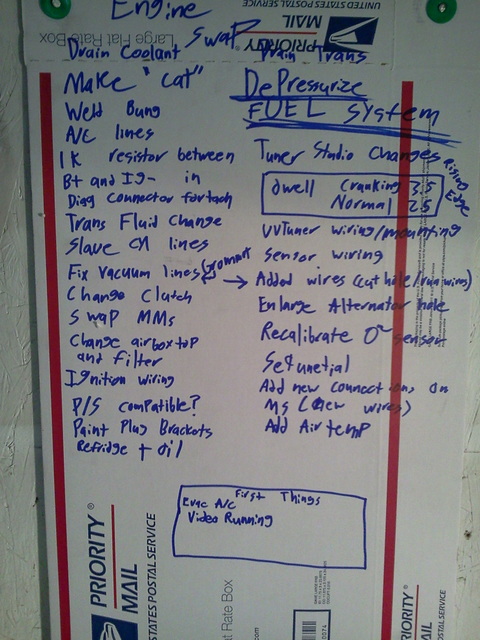 Engine
Swap
Large Flat Rate Box
PRIORITY
MAIL
UNITED STATES POSTAL SERVICE
Drain Coolant
Make "cat"
Weld Bung
A/C lines
1K resistor between
B+ and IG- in
Diag connector for tach
Trans Fluid Change
Slave Cyl lines
Fix vacuum lines
Change Clutch
Swap MMs
Change airbox top
and filter
Ignition wiring
P/S compatible?
Paint Plug Brackets
Refridge + oil
Drain Trans
DePressurize
FUEL System
Tuner Studio Changes
Dwell Cranking 3.5
Normal 2.5
Rising
Edge
VVTuner wiring/mounting
Sensor wiring
Added wires (cut hole/run wires)
Enlarge Alternator hole
Recalibrate O2 sensor
Add new connections on
MS (new wires)
Add Air temp
First Things
Evac A/C
Video Running
PRIORITY
MAIL
STATES POSTAL SERVICE
at Rate Box
PRIORITY
MAIL